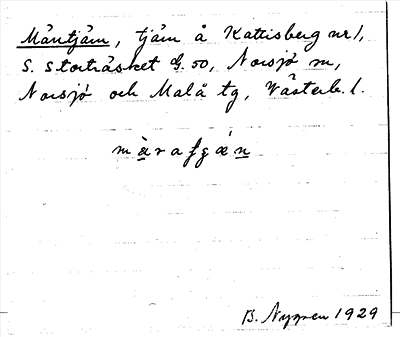 Mårtjärn, tjärn å Kattisberg nr 1,
S. Storträsket G. 50, Norsjö sn,
Norsjö och Malå tg, Västerb. l.
B. Nygren 1929